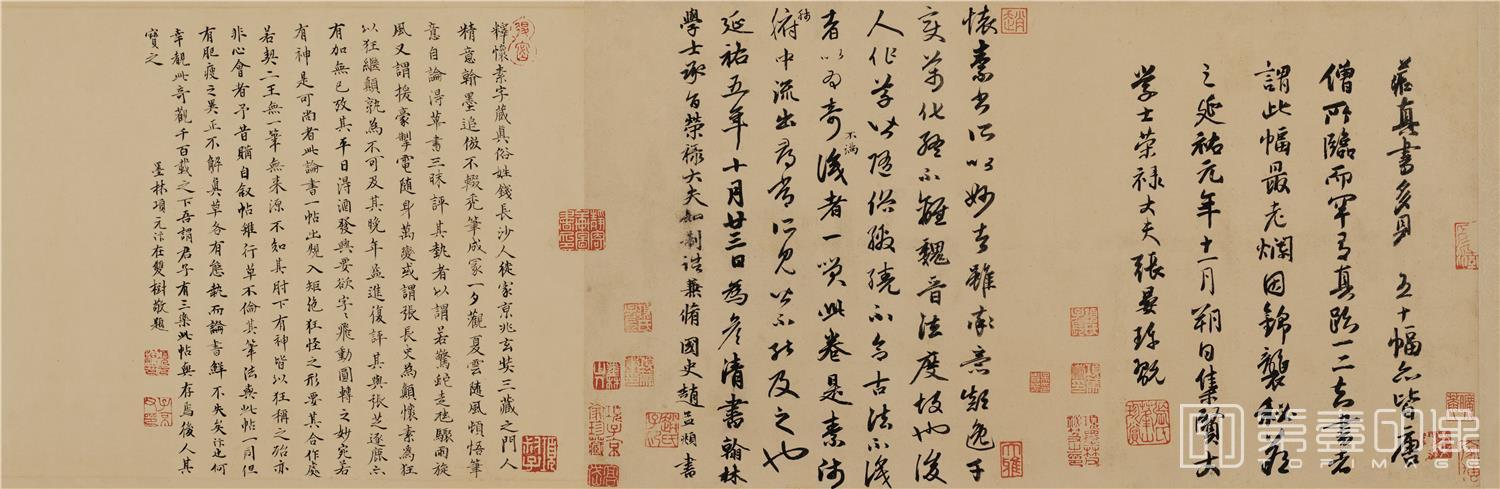 藏真書多見五十幅亦皆唐
僧所臨而罕有真跡一二知書者
謂此幅最老爛因錦襲秘藏
之延祐元年十一月朔日集賢大
學士榮祿大夫張晏珍翫
懷素書所以妙者雖率意顛逸千
變萬化終不離魏晉法度故也後
人作草皆隨俗繳繞不合古法不識
者以為奇不滿識者一笑此卷是素師
肺腑中流出尋常所見皆不能及之也
延祐五年十月廿三日為彥清書翰林
學士承旨榮祿大夫知制誥兼脩國史趙孟頫書
釋懷素字藏真俗姓錢長沙人徙家京兆玄奘三藏之門人
精意翰墨追倣不輟禿筆成冢一夕觀夏雲隨風頓悟筆
意自論得草書三昧評其勢者以謂若驚蛇走虺驟雨旋
風又謂援豪掣電隨身萬變或謂張長史為顛懷素為狂
以狂繼顛孰為不可及其晚年益進復評其與張芝逐鹿亦
有加無已攷其平日得酒發興要欲字〻飛動圓轉之妙宛若
有神是可尚者此論書一帖出規入矩絕狂怪之形要其合作處
若契二王無一筆無來源不知其肘下有神皆以狂稱之殆亦
非心會者予昔購自叙帖雖行草不倫其筆法與此帖一同但
有肥瘦之異正不解真草各有態執而論書鮮不失矣汴也何
幸觀此奇觀千百載之下吾謂君子有三樂此帖與存焉後人其
寶之
墨林項元汴在雙樹敬題
TOPIMAGE